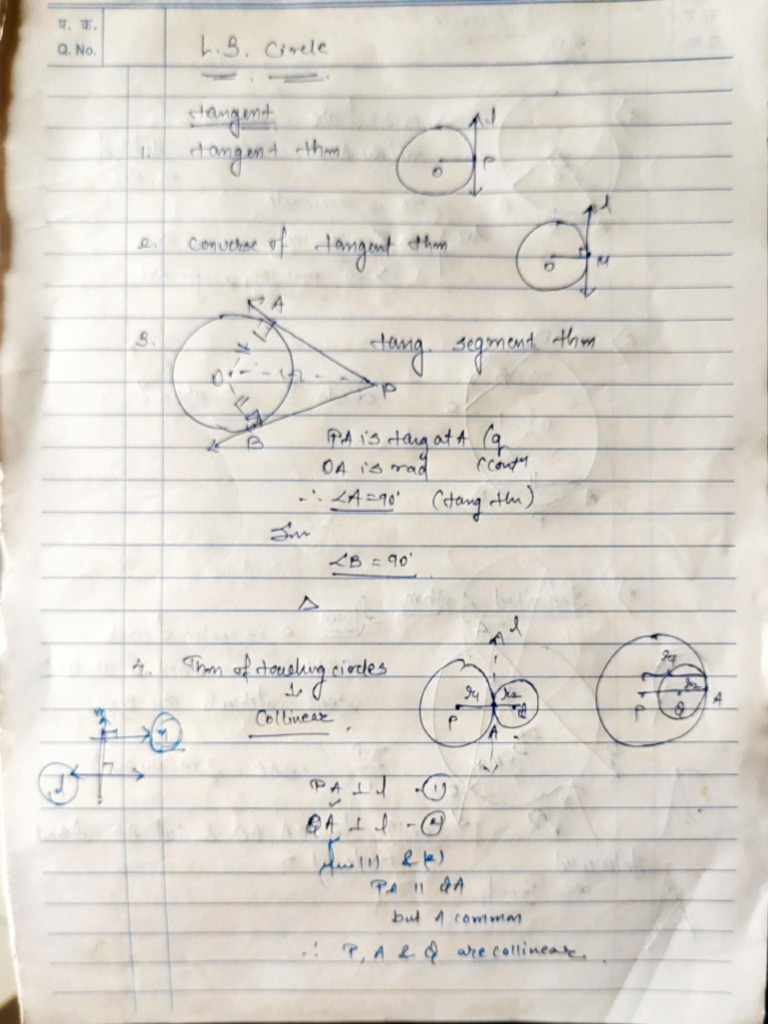 प्र. क्र.
Q. No.
L.3. Circle
tangent
1. tangent thm
l
O P
2. converse of tangent thm
l
O M
3. tang. segment thm
A
O P
B
PA is tang at A
OA is rad
∴ ∠A = 90° (tang thm)
∠B = 90°
△
4. Thm of touching circles
↓
Collinear.
l
r1 r2
P Q
A
r1
r2
P Q A
n
l
PA ⊥ l - ①
QA ⊥ l - ②
from (1) & (2)
PA || QA
but A common
∴ P, A & Q are collinear.